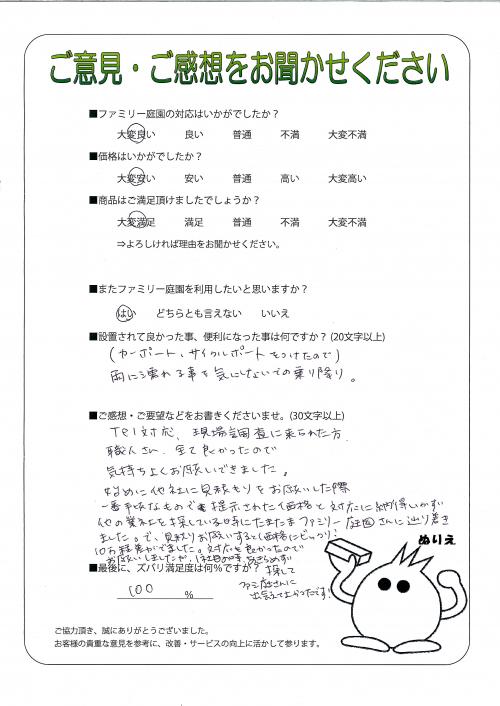 ご意見・ご感想をお聞かせください
■ファミリー庭園の対応はいかがでしたか？
大変良い 良い 普通 不満 大変不満
■価格はいかがでしたか？
大変安い 安い 普通 高い 大変高い
■商品はご満足頂けましたでしょうか？
大変満足 満足 普通 不満 大変不満
⇒よろしければ理由をお聞かせください。
■またファミリー庭園を利用したいと思いますか？
はい どちらとも言えない いいえ
■設置されて良かった事、便利になった事は何ですか？(20文字以上)
(カーポート、サイクルポートをつけたので)
雨に濡れる事を気にしないでの乗り降り。
■ご感想・ご要望などをお書きくださいませ。(30文字以上)
Tel対応、現場調査に来られた方、
職人さん、全て良かったので
気持ちよくお願いできました。
始めに他社に見積もりをお願いした際
一番手頃なものでも提示された価格と対応に納得いかず
他の業者を探している時にたまたまファミリー庭園さんに辿り着き
ました。で、見積りお願いすると価格にビックリ！
対応も良かったので
お願いしましたが、
探して
ファミ庭さんに
出会えて良かったです！
ぬりえ
■最後に、ズバリ満足度は何％ですか？
100 ％
ご協力頂き、誠にありがとうございました。
お客様の貴重な意見を参考に、改善・サービスの向上に活かして参ります。